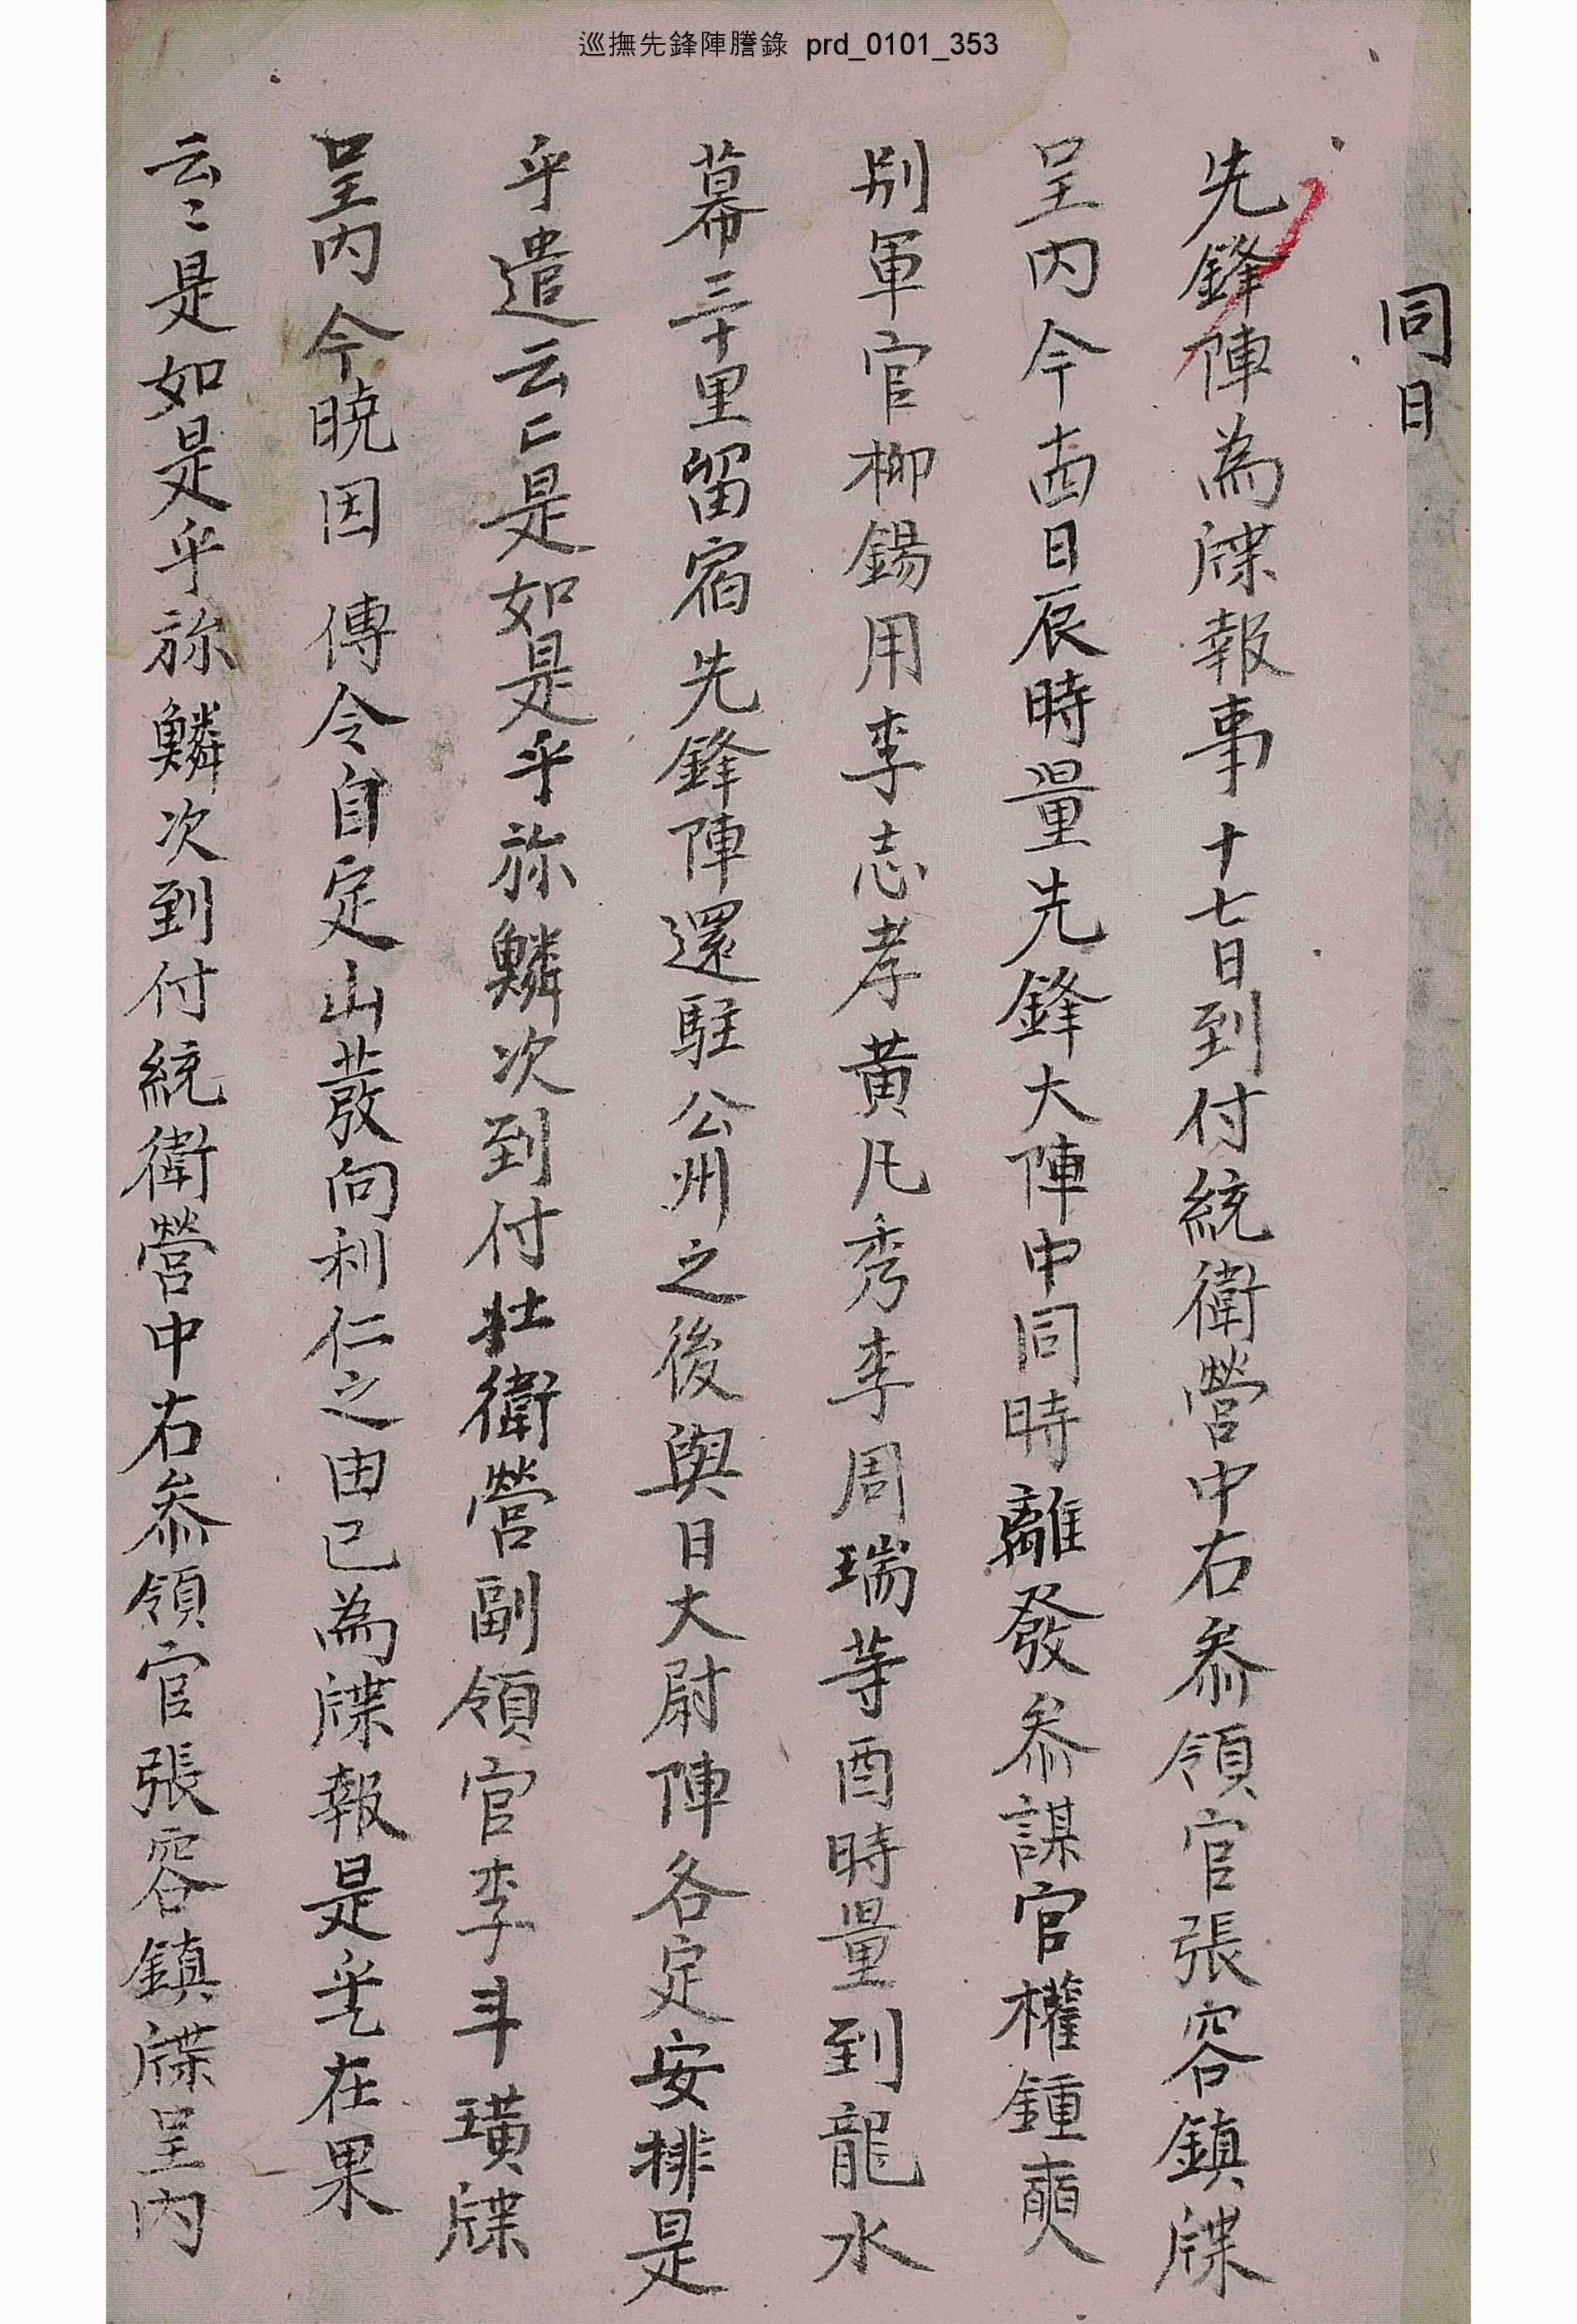 巡撫先鋒陣謄錄 prd_0101_353
同日
先鋒陣為牒報事十七日到付統衛營中右叅領官張容鎮牒
呈内今十四日辰時量先鋒大陣中同時離發叅謀官權鍾奭
別軍官柳錫用李志孝黃凡秀李周瑞等酉時量到龍水
幕三十里留宿先鋒陣還駐公州之後與日大尉陣各定安排是
乎遣云〻是如是乎祢鱗次到付壯衛營副領官李斗璜牒
呈内今曉因 傳令自定山發向利仁之由已為牒報是乎在果
云〻是如是乎祢鱗次到付統衛營中右叅領官張容鎮牒呈内